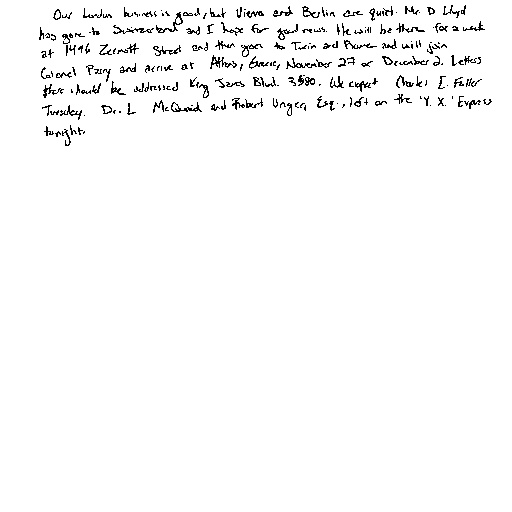 Our London business is good, but Vienna and Berlin are quiet. Mr. D Lloyd
has gone to Switzerland and I hope for good news. He will be there for a week
at 1496 Zermott Street and then goes to Turin and Rome and will join
Colonel Parry and arrive at Athens, Greece, November 27 or December 2. Letters
there should be addressed King James Blvd. 3580. We expect Charles E. Fuller
Tuesday. Dr. L McQuaid and Robert Unger, Esq., left on the 'Y. X.' Express
tonight.